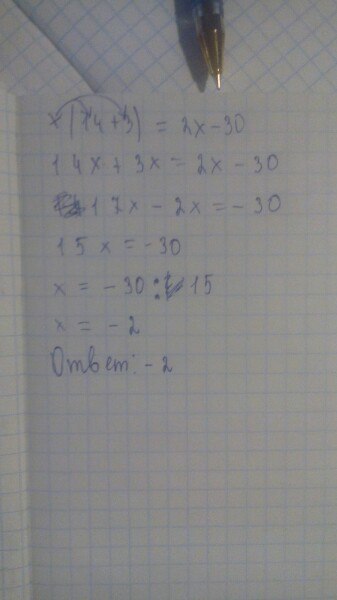 x(14+3) = 2x-30
14x+3x=2x-30
17x-2x=-30
15x=-30
x = -30:15
x = -2
Ответ: -2